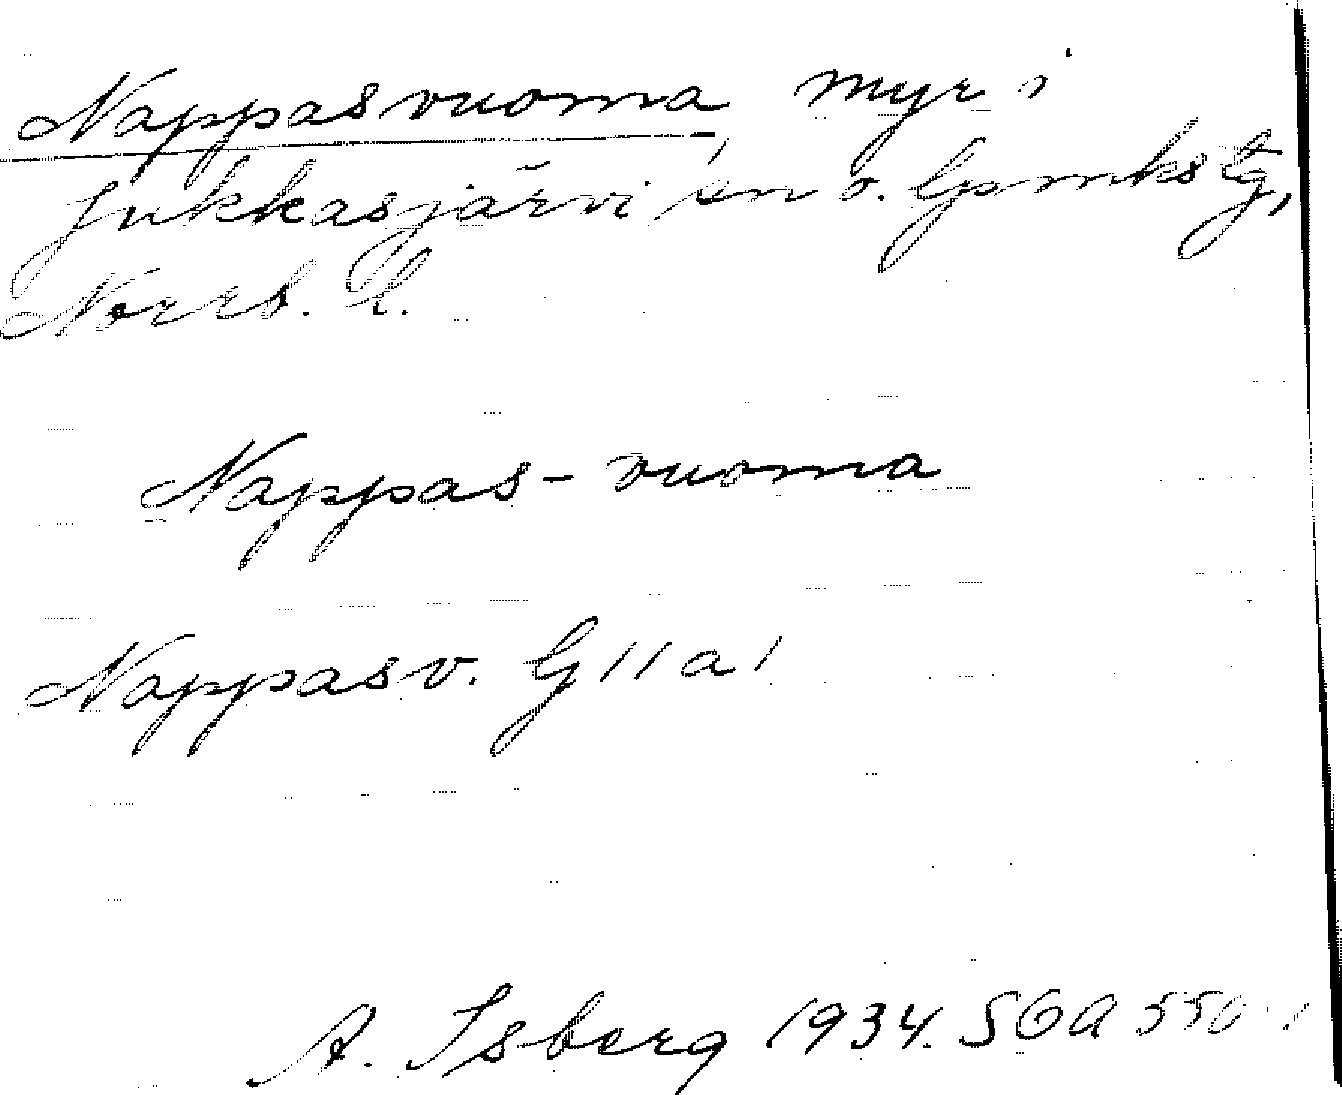 Nappasvuoma, myr i
Jukkasjärvi sn o. lpmks tg,
Norrb. l.
Nappas-vuoma
Nappasv. G11a1
A. Isberg 1934. SOA 550